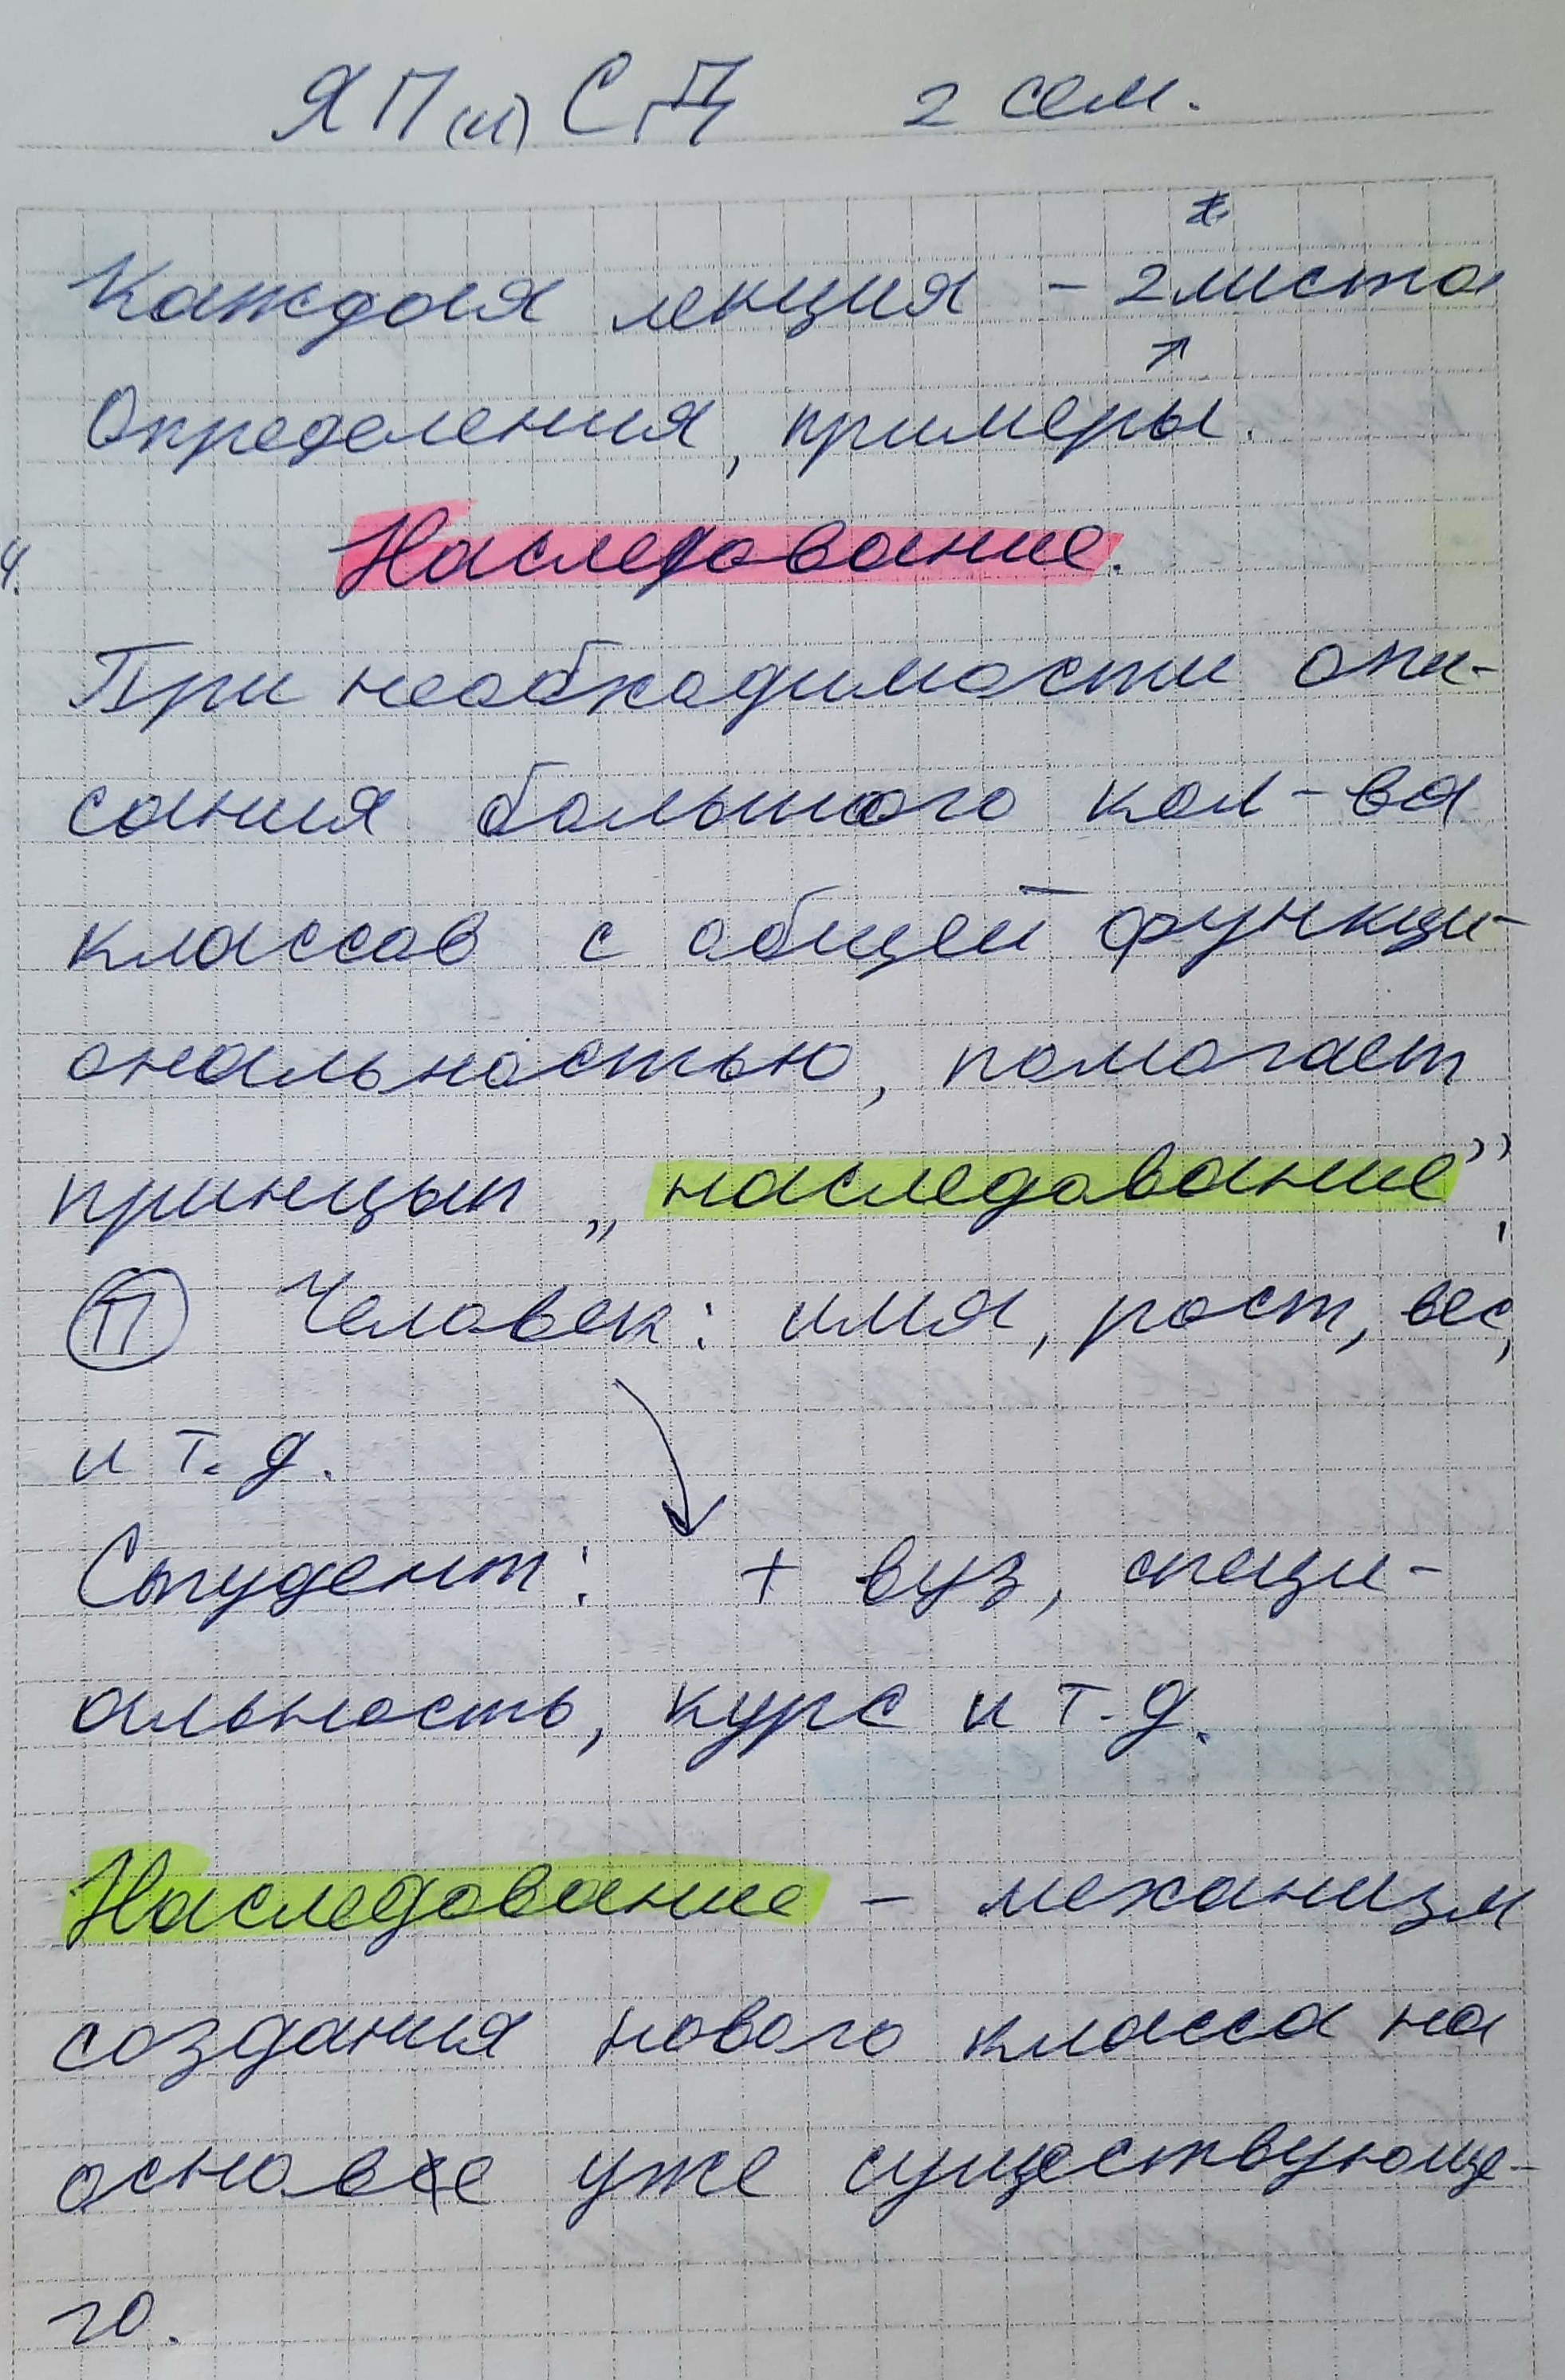 ЯП(и)СД 2 сем.
Каждая лекция - 2 листа
Определения, примеры.
Наследование.
При необходимости опи-
сания большого кол-ва
классов с общей функци-
ональностью, помогает
принцып „наследование”,
П Человек: имя, рост, вес,
и т.д.
Студент: + вуз, специ-
альность, курс и т.д.
Наследование - механизм
создания нового класса на
основе уже существующе-
го.